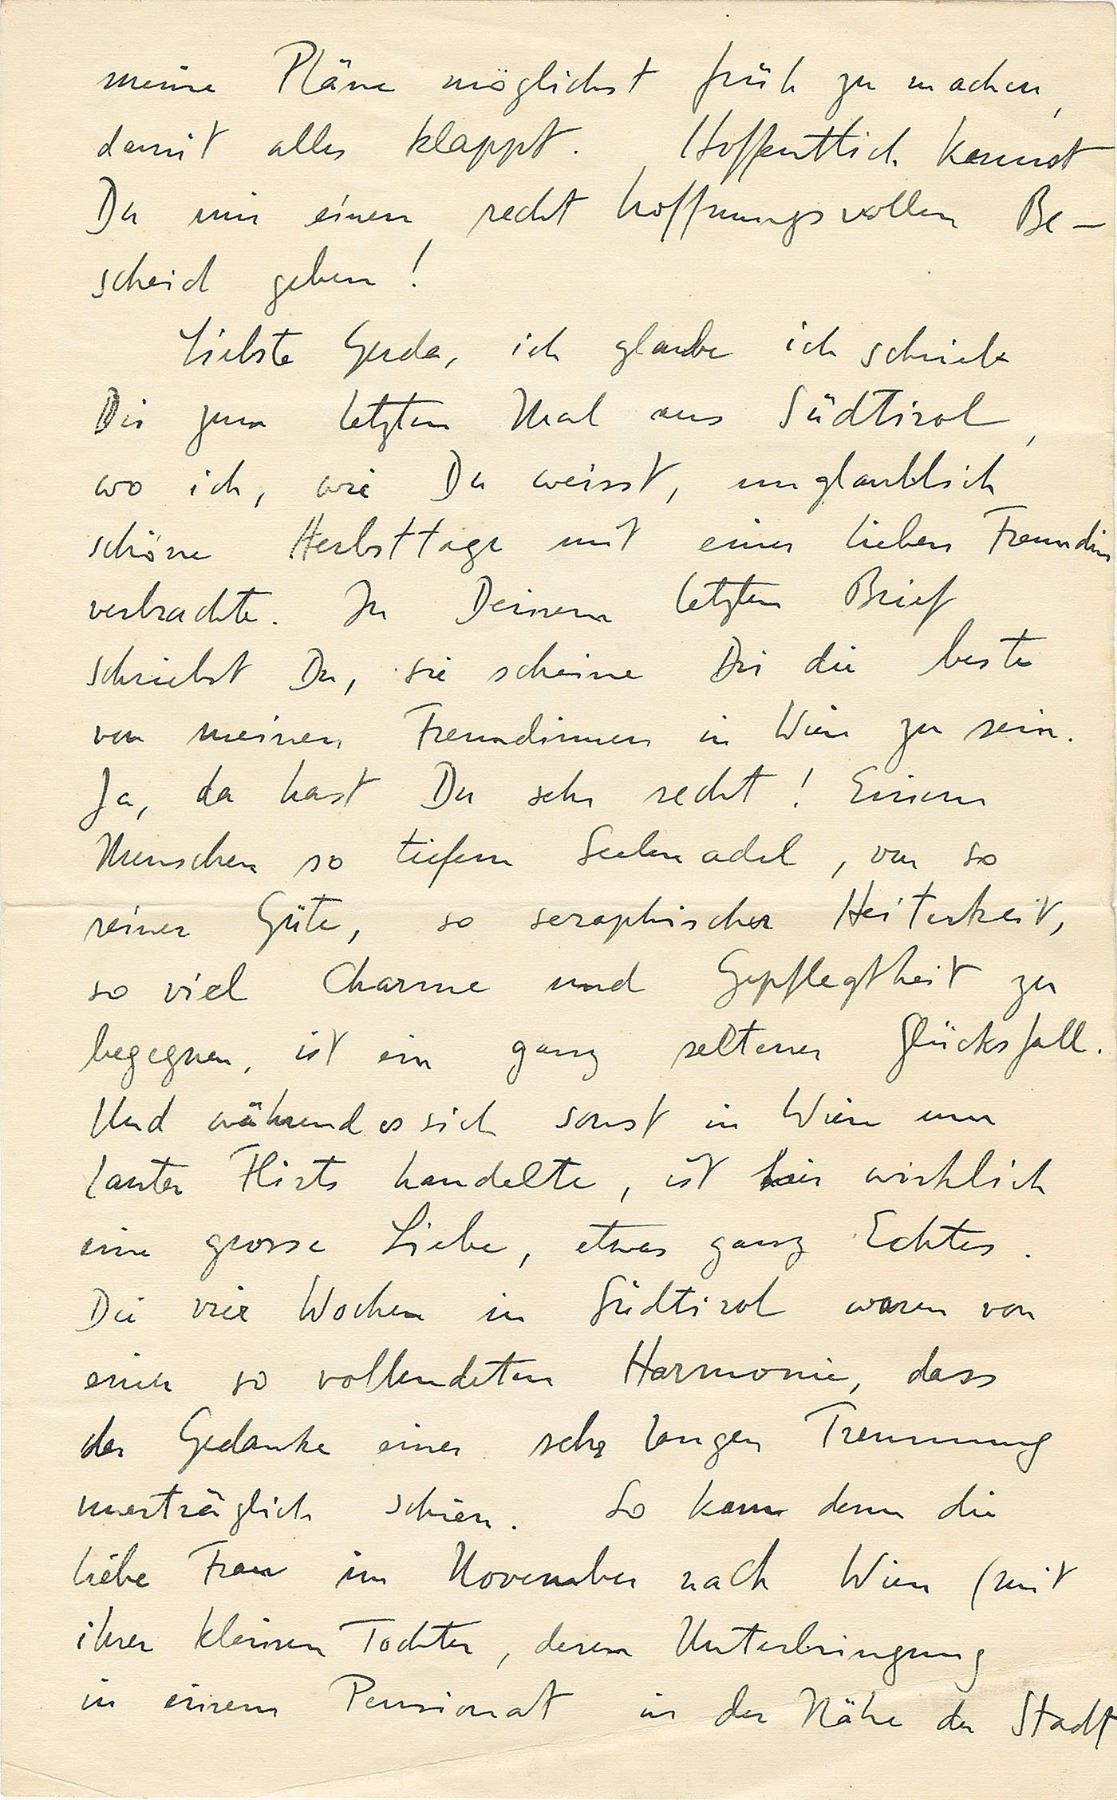 meine Pläne möglichst früh zu machen,
damit alles klappt. Hoffentlich kannst
Du mir einen recht hoffnungsvollen Be-
scheid geben!
Liebste Gerda, ich glaube ich schrieb
Dir zum letzten Mal aus Südtirol,
wo ich, wie Du weisst, unglaublich
schöne Herbsttage mit einer lieben Freundin
verbrachte. In Deinem letzten Brief
schriebst Du, sie scheine Dir die beste
von meinen Freundinnen in Wien zu sein.
Ja, da hast Du sehr recht! Einem
Menschen so tiefem Seelenadel, von so
reiner Güte, so seraphischer Heiterkeit,
so viel Charme und Gepflegtheit zu
begegnen, ist ein ganz seltener Glücksfall.
Und während es sich sonst in Wien um
lauter Flirts handelte, ist hier wirklich
eine grosse Liebe, etwas ganz Echtes.
Die vier Wochen in Südtirol waren von
einer so vollendeten Harmonie, dass
der Gedanke einer sehr langen Trennung
unerträglich schien. So kam denn die
liebe Frau im November nach Wien (mit
ihrer kleinen Tochter, deren Unterbringung
in einem Pensionat in der Nähe der Stadt